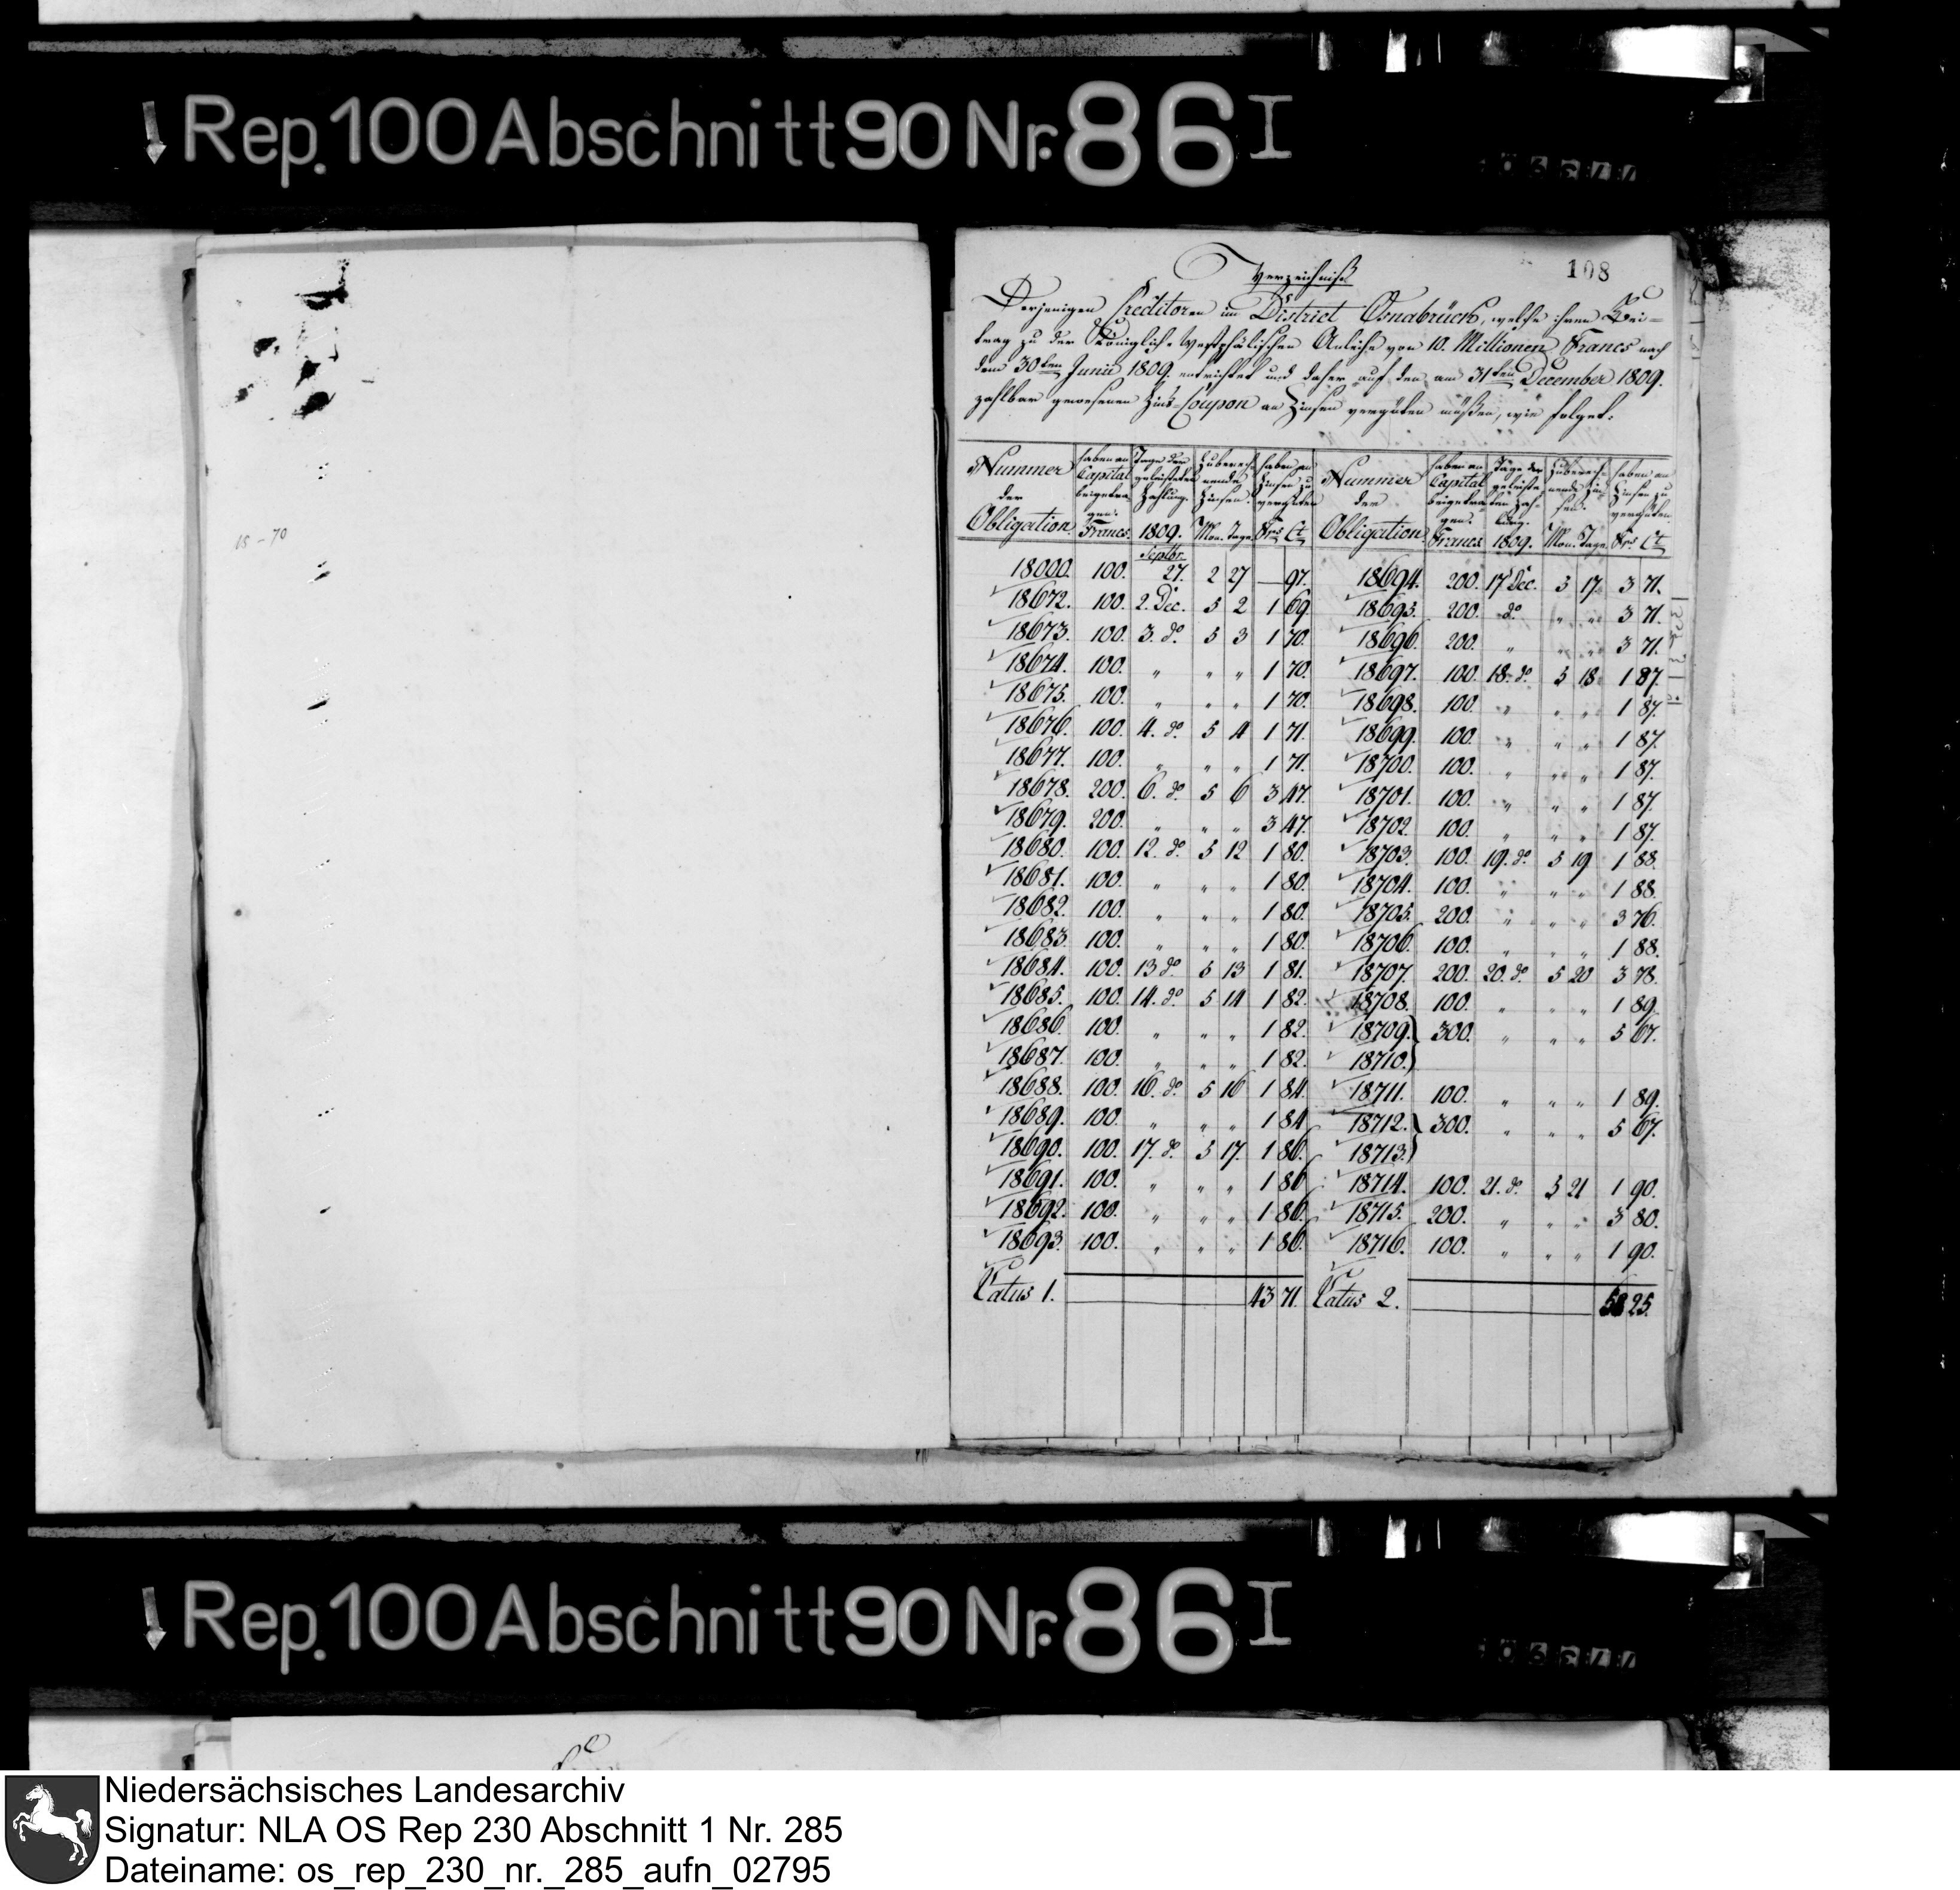 Rep. 100 Abschnitt 90 Nr. 86 I
108
15 – 70
Verzeichniß
Derjenigen Creditoren im District Osnabrück, welche ihren Bei-
trag zu der Königlich-Westphälischen Anleihe von 10. Millionen Francs nach
dem 30ten Junii 1809. entrichtet und daher auf den am 31ten December 1809.
zahlbar gewesenen Zins-Coupon an Zinsen vergüten müßen, wie folget:
Nummer der Obligation. | haben an Capital beigetragen. Francs. | Tage der geleisteten Zahlung. 1809. | Zuberechnende Zinsen. Mon. Tage. | haben an Zinsen zu vergüten Frs. Ct. | Nummer der Obligation. | haben an Capital beigetragen. Francs | Tage der geleisteten Zahlung. 1809. | Zuberechnende Zinsen. Mon. Tage. | haben an Zinsen zu vergüten. Frs. Ct.
18000. 100. Septbr. 27. 2 27 — 97. 18694. 200. 17 Dec. 5 17. 3 71.
18672. 100. 2. Dec. 5 2 1 69 18695. 200. do. " " 3 71.
18673. 100. 3. do 5 3 1 70. 18696. 200. " " " 3 71.
18674. 100. " " " 1 70. 18697. 100. 18. do. 5 18. 1 87
18675. 100. " " " 1 70. 18698. 100. " " " 1 87.
18676. 100. 4. do. 5 4 1 71. 18699. 100. " " " 1 87.
18677. 100. " " " 1 71. 18700. 100. " " " 1 87.
18678. 200. 6. do. 5 6 3 47. 18701. 100. " " " 1 87.
18679. 200. " " " 3 47. 18702. 100. " " " 1 87.
18680. 100. 12. do. 5 12 1 80. 18703. 100. 19. do. 5 19 1 88.
18681. 100. " " " 1 80. 18704. 100. " " " 1 88.
18682. 100. " " " 1 80. 18705. 200. " " " 3 76.
18683. 100. " " " 1 80. 18706. 100. " " " 1 88.
18684. 100. 13 do 5 13 1 81. 18707. 200. 20. do. 5 20 3 78.
18685. 100. 14. do. 5 14 1 82. 18708. 100. " " " 1 89.
18686. 100. " " " 1 82. 18709. } 300. " " " 5 67.
18687. 100. " " " 1 82. 18710. }
18688. 100. 16. do. 5 16 1 84. 18711. 100. " " " 1 89.
18689. 100. " " " 1 84 18712. } 300. " " " 5 67.
18690. 100. 17. do. 5 17. 1 86. 18713. }
18691. 100. " " " 1 86 18714. 100. 21. do. 5 21 1 90.
18692. 100. " " " 1 86. 18715. 200. " " " 3 80.
18693. 100. " " " 1 86. 18716. 100. " " " 1 90.
Latus 1. 43 71. Latus 2. 58 25.
Rep. 100 Abschnitt 90 Nr. 86 I
Niedersächsisches Landesarchiv
Signatur: NLA OS Rep 230 Abschnitt 1 Nr. 285
Dateiname: os_rep_230_nr._285_aufn_02795